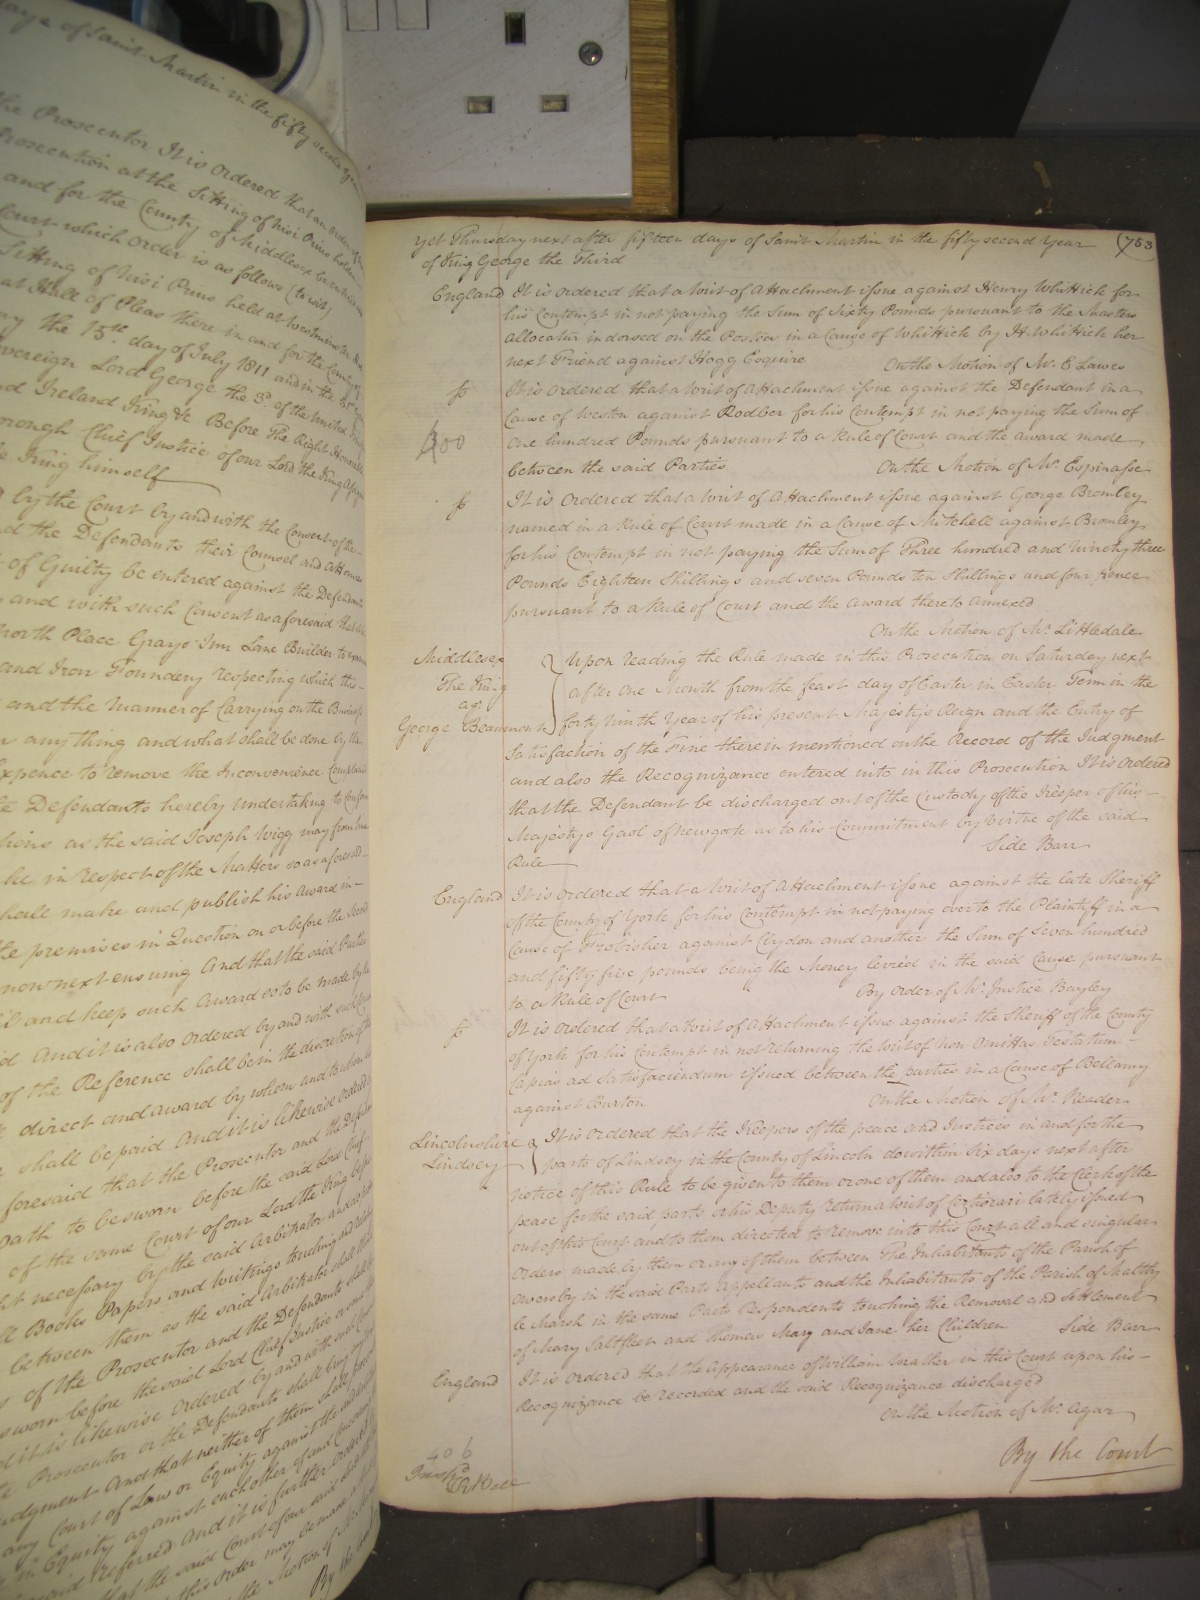 days of Saint Martin in the fifty second year
the Prosecutor It is Ordered that an order of
Prosecution at the Sitting of Nisi Prius holden
and for the County of Middlesex be entered
Court which order is as follows (to wit)
Sitting of Nisi Prius held at Westminster
at Hall of Pleas there in and for the County of
the 15th. day of July 1811 and in the 51st
Sovereign Lord George the 3d. of the United
Ireland King &c Before The Right Honorable
Chief Justice of our Lord the King
King himself
by the Court by and with the Consent of the
the Defendants their Counsel and Attornies
of Guilty be entered against the Defendants
and with such Consent as aforesaid that
North Place Grays Inn Lane Builder to
and Iron Foundery respecting which this
and the Manner of Carrying on the Business
any thing and what shall be done by the
Expence to remove the Inconvenience Complained
Defendants hereby undertaking to Conform
as the said Joseph Wigg may from time
in respect of the Matters so as aforesaid
shall make and publish his Award in
the premises in Question on or before the Second
now next ensuing And that the said Parties
and keep such Award so to be made by the
And it is also Ordered by and with such
of the Reference shall be in the discretion of the
direct and award by whom and to whom
shall be paid And it is likewise Ordered
foresaid that the Prosecutor and the Defendants
oath to be sworn before the said Lord Chief
of the same Court of our Lord the King before
necessary by the said Arbitrator
Books Papers and Writings touching
between them as the said Arbitrator shall
of the Prosecutor and the Defendants shall
sworn before the said Lord Chief Justice or
it is likewise Ordered by and with such
Prosecutor or the Defendants shall bring
Judgment And that neither of them shall
any Court of Law or Equity against the
in Equity against each other
said referred And it is further Ordered
that the said Court of our said
this order may be made a
the Motion of Mr.
By the Court
Yet Thursday next after fifteen days of Saint Martin in the fifty second Year
of King George the Third
(753
England It is Ordered that a Writ of Attachment issue against Henry Whittick for
his Contempt in not paying the Sum of Sixty Pounds pursuant to the Masters
Allocatur indorsed on the Postea in a Cause of Whittick by H. Whittick her
next Friend against Hogg Esquire On the Motion of Mr. E Lawes
It is Ordered that a Writ of Attachment issue against the Defendant in a
Cause of Weston against Rodber for his Contempt in not paying the Sum of
One hundred Pounds pursuant to a Rule of Court and the award made
between the said Parties On the Motion of Mr. Espinasse
It is Ordered that a Writ of Attachment issue against George Bromley
named in a Rule of Court made in a Cause of Mitchell against Bromley
for his Contempt in not paying the Sum of Three hundred and Ninety three
Pounds Eighteen Shillings and seven Pounds ten Shillings and four pence
pursuant to a Rule of Court and the Award thereto Annexed
On the Motion of Mr. Littledale
Middlesex Upon reading the Rule made in this Prosecution on Saturday next
The King after One Month from the feast day of Easter in Easter Term in the
agt.
George Beaumont forty ninth Year of his present Majesty's Reign and the Entry of
Satisfaction of the Fine therein mentioned on the Record of the Judgment
and also the Recognizance entered into in this Prosecution It is Ordered
that the Defendant be discharged out of the Custody of the Keeper of his
Majestys Gaol of Newgate as to his Commitment by Virtue of the said
Rule Side Barr
England It is Ordered that a Writ of Attachment issue against the late Sheriff
of the County of York for his Contempt in not paying over to the Plaintiff in a
Cause of Frobisher against Clydon and another the Sum of Seven hundred
and fifty five pounds being the Money levied in the said Cause pursuant
to a Rule of Court By Order of Mr. Justice Bayley
It is Ordered that a Writ of Attachment issue against the Sheriff of the County
of York for his Contempt in not returning the Writ of Non Omittas Testatum
Capias ad Satisfaciendum issued between the parties in a Cause of Bellamy
against Burton On the Motion of Mr. Reader
Lincolnshire It is Ordered that the Keepers of the peace and Justices in and for the
Lindsey parts of Lindsey in the County of Lincoln do within Six days next after
notice of this Rule to be given to them or one of them and also to the Clerk of the
peace for the said parts or his Deputy return a Writ of Certiorari lately issued
out of this Court and to them directed to remove into this Court all and singular
Orders made by them or any of them between The Inhabitants of the Parish of
Aweresby in the said Parts Appellants and the Inhabitants of the Parish of Maltby
le Marsh in the same Parts Respondents touching the Removal and Settlement
of Mary Saltfleet and Thomas Mary and Jane her Children Side Barr
England It is Ordered that the Appearance of William Mather in this Court upon his
Recognizance be recorded and the said Recognizance discharged
On the Motion of Mr. Agar
406
By the Court